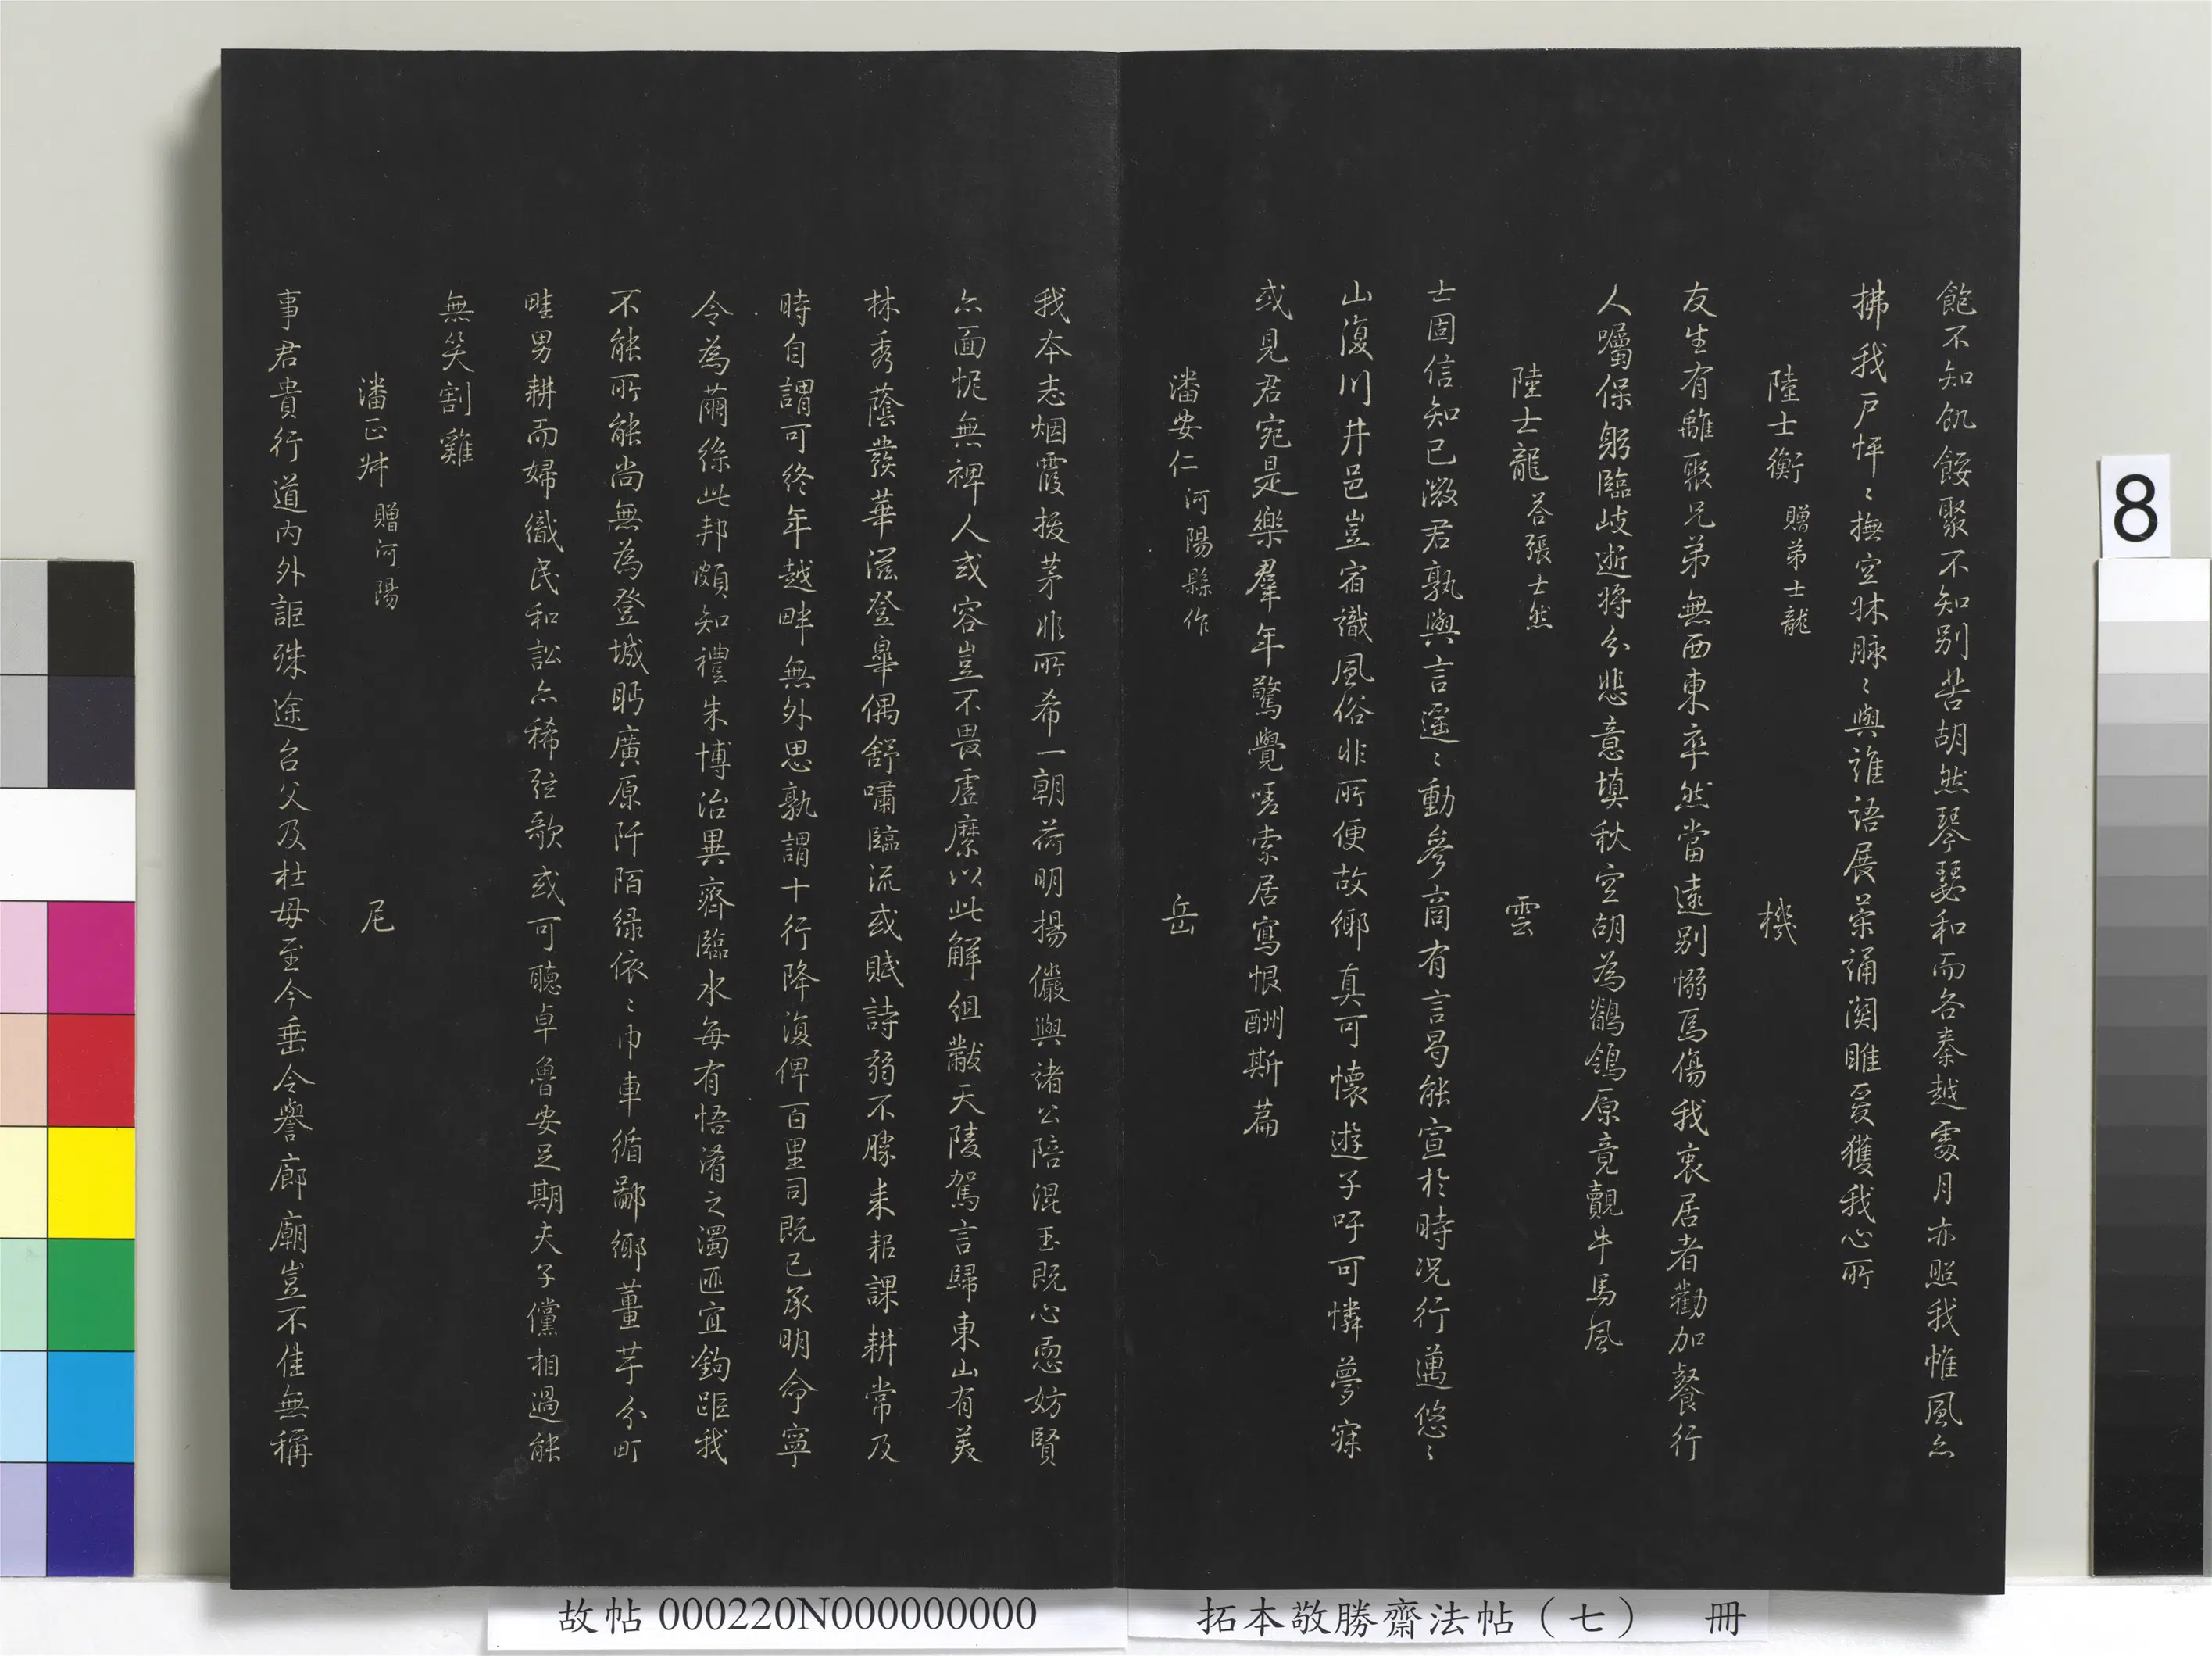 飽不知飢餒聚不知别苦胡然琴瑟和而各秦越霽月亦照我帷風亦
拂我戶怦〻撫空牀脉〻與誰語展榮誦関雎爰獲我心所
陸士衡 贈弟士龍 機
友生有離聚兄弟無西東卒然當遠别惄焉傷我衷居者勸加餐行
人囑保躬臨岐逝将分悲意填秋空胡為鶺鴒原竟覿牛馬風
陸士龍 答張士然 雲
士固信知己微君孰與言遥〻動參商有言曷能宣於時況行邁悠〻
山復川井邑豈宿識風俗非所便故鄉真可懷遊子吁可憐夢寐
或見君宛是樂羣年驚覺嗟索居寫恨酬斯篇
潘安仁 河陽縣作 岳
我本志烟霞拔茅非所希一朝荷明揚儼與諸公陪混玉既心恧妨賢
亦面怩無裨人或容豈不畏虛縻以此解組黻天陵駕言歸東山有美
林秀蔭發華滋登皋偶舒嘯臨流或賦詩弱不勝耒耜課耕常及
時自謂可終年越畔無外思孰謂十行降復俾百里司既已承明命寧
令為繭絲此邦頗知禮朱博治異齊臨水每有悟淆之濁匪宜鉤距我
不能所能尚無為登城眄廣原阡陌绿依〻巾車循鄙鄉薑芋分町
畦男耕而婦織民和訟亦稀弦歌或可聽卓魯安足期夫子儻相過能
無笑割雞
潘正叔 贈河陽 尼
事君貴行道内外詎殊途召父及杜母至今垂令譽廊廟豈不佳無稱
8
故帖 000220N000000000
拓本敬勝齋法帖（七） 冊